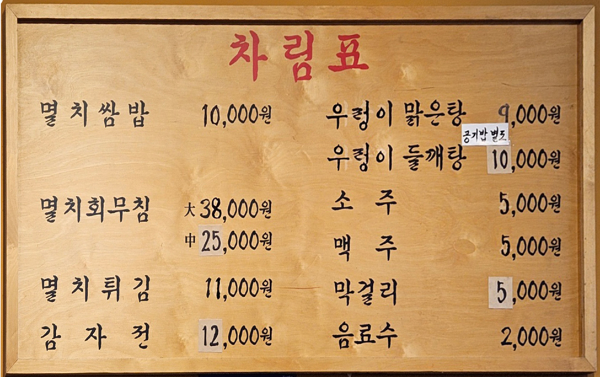 차림표
멸치쌈밥 10,000원
멸치회무침 大 38,000원
中 25,000원
멸치튀김 11,000원
감자전 12,000원
우렁이 맑은탕 9,000원
공기밥 별도
우렁이 들깨탕 10,000원
소주 5,000원
맥주 5,000원
막걸리 5,000원
음료수 2,000원